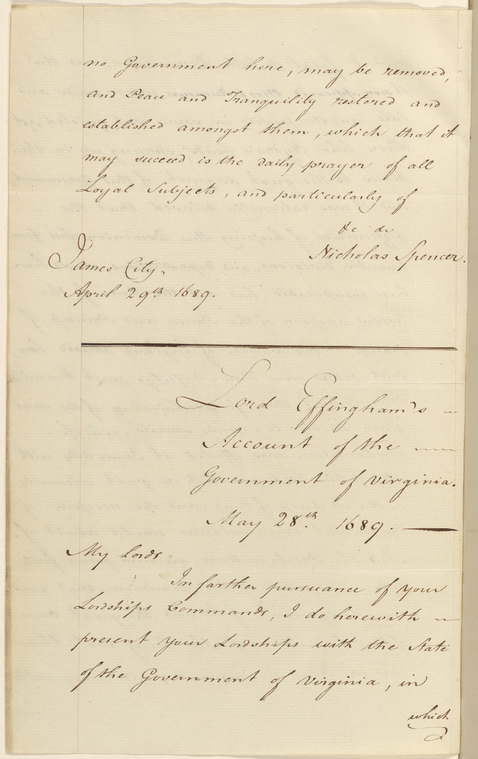 no Government here, may be removed,
and Peace and Tranquility restored and
established amongst them, which that it
may succeed is the daily prayer of all
Loyal Subjects, and particularly of
&c &c
Nicholas Spencer.
James City,
April 29th 1689.
Lord Effingham's
Account of the
Government of Virginia.
May 28th. 1689.
My Lords
In farther pursuance of your
Lordships Commands, I do herewith
present your Lordships with the State
of the Government of Virginia, in
which